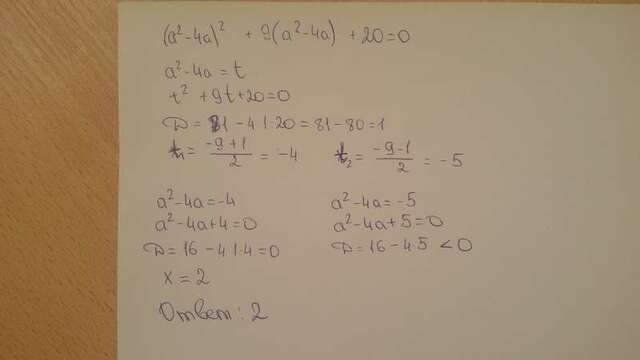 (a²-4a)² + 9(a²-4a) + 20=0
a²-4a=t
t²+9t+20=0
D=81-4·1·20=81-80=1
t₁=(-9+1)/2=-4 t₂=(-9-1)/2=-5
a²-4a=-4 a²-4a=-5
a²-4a+4=0 a²-4a+5=0
D=16-4·1·4=0 D=16-4·5<0
x=2
Ответ: 2